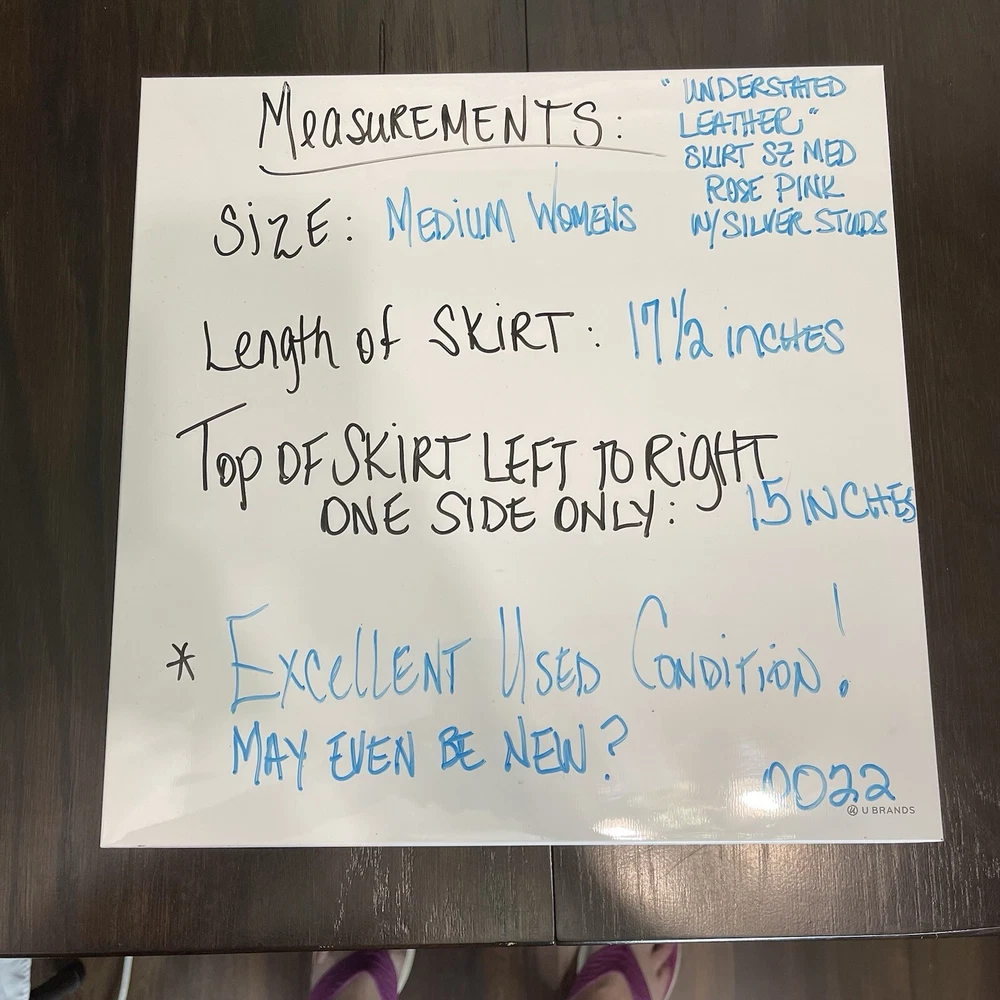 MeasUREMENTS:
"UNDERSTATED
LEATHER"
SKIRT SZ MED
ROSE PINK
W/SILVER STUDS
SiZE: MEDIUM WOMENS
Length of SKiRT: 17 1/2 inCHES
Top OF SKiRT LEFT TO RigHT
ONE SIDE ONLY: 15 INCHES
* ExcellENT USED CONDITION!
MAY EVEN BE NEW?
0022
U BRANDS